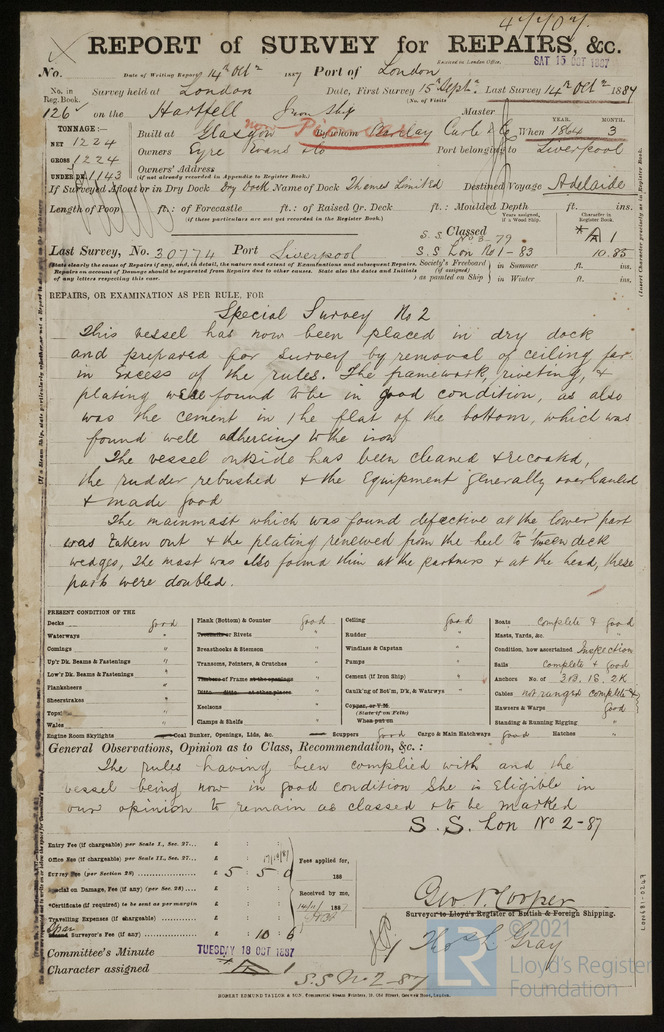 47707.
REPORT of SURVEY for REPAIRS, &c.
Received in London Office,
SAT 15 OCT 1887
No. Date of Writing Report 14th Octr 1887 Port of London
No. in Reg. Book. Survey held at London Date, First Survey 15th Septr Last Survey 14th Octr 1887
(No. of Visits
126 on the Hartfell Iron Ship Master
TONNAGE:— YEAR. MONTH.
NET 1224 Built at Glasgow By whom Barclay Curle & Co When 1864 3
GROSS 1224 Owners Eyre Evans & Co Port belonging to Liverpool
UNDER DK. 1143 Owners' Address
(if not already recorded in Appendix to Register Book.)
If Surveyed Afloat or in Dry Dock Dry Dock Name of Dock Thames Limited Destined Voyage Adelaide
Length of Poop ft.: of Forecastle ft.: of Raised Qr. Deck ft.: Moulded Depth ft. ins.
(if these particulars are not yet recorded in the Register Book.)
Years assigned, if a Wood Ship. Character in Register Book.
Classed * A 1
S. S. No 3-79
Last Survey, No. 30774 Port Liverpool S. S. Lon No 1-83 10.85
(State clearly the cause of Repairs if any, and, in detail, the nature and extent of Examinations and subsequent Repairs.
Repairs on account of Damage should be separated from Repairs due to other causes. State also the dates and Initials
of any letters respecting this case.
Society's Freeboard (if assigned) as painted on Ship in Summer ft. ins.
in Winter ft. ins.
REPAIRS, OR EXAMINATION AS PER RULE, FOR
Special Survey No 2
This vessel has now been placed in dry dock
and prepared for survey by removal of ceiling far
in excess of the rules. The framework, riveting, &
plating were found to be in good condition, as also
was the cement in the flat of the bottom, which was
found well adhering to the iron
The vessel outside has been cleaned & recoated,
the rudder rebushed & the Equipment generally overhauled
& made good
The mainmast which was found defective at the lower part
was taken out & the plating renewed from the heel to 'tween deck
wedges, The mast was also found thin at the partners & at the head, these
parts were doubled.
PRESENT CONDITION OF THE
Decks good
Waterways "
Comings "
Up'r Dk. Beams & Fastenings "
Low'r Dk. Beams & Fastenings "
Planksheers "
Sheerstrakes "
Topsi "
Wales "
Engine Room Skylights
Plank (Bottom) & Counter good
Treenails or Rivets "
Breasthooks & Stemson "
Transoms, Pointers, & Crutches "
Timbers of Frame at the openings "
Ditto ditto at other places "
Keelsons "
Clamps & Shelfs "
Coal Bunker, Openings, Lids, &c.
Ceiling good
Rudder "
Windlass & Capstan "
Pumps "
Cement (if Iron Ship) "
Caulk'ng of Bot'm, D'k, & Watrwys "
Copper, or Y.M.
(State if on Felt)
When put on
Scuppers good Cargo & Main Hatchways good Hatches "
Boats complete & good
Masts, Yards, &c. "
Condition, how ascertained Inspection
Sails complete & good
Anchors No. of 3B. 1S. 2K
Cables not ranged complete &
Hawsers & Warps good
Standing & Running Rigging "
General Observations, Opinion as to Class, Recommendation, &c.:
The rules having been complied with and the
vessel being now in good condition She is Eligible in
our opinion to remain as classed & to be marked
S. S. Lon No 2-87
Entry Fee (if chargeable) per Scale I., Sec. 27... £ : :
Office Fee (if chargeable) per Scale II., Sec. 27... £ : :
Survey Fee (per Section 28) £ 5 : 5 : 0
Special on Damage, Fee (if any) (per Sec. 28) £ : :
*Certificate (if required) to be sent as per margin
Travelling Expenses (if chargeable) £ : :
Surveyor's Fee (if any) £ : 10 : 6
Fees applied for,
188
Received by me,
1887
Geo. N. Cooper
Surveyor to Lloyd's Register of British & Foreign Shipping.
Thos. H. Gray
Committee's Minute TUESDAY 18 OCT 1887
Character assigned * A 1
S.S. No 2-87
ROBERT EDMUND TAYLOR & SON, Commercial Steam Printers, 19, Old Street, Goswell Road, London.
LON691-0247
© 2021
LR
Lloyd's Register
Foundation